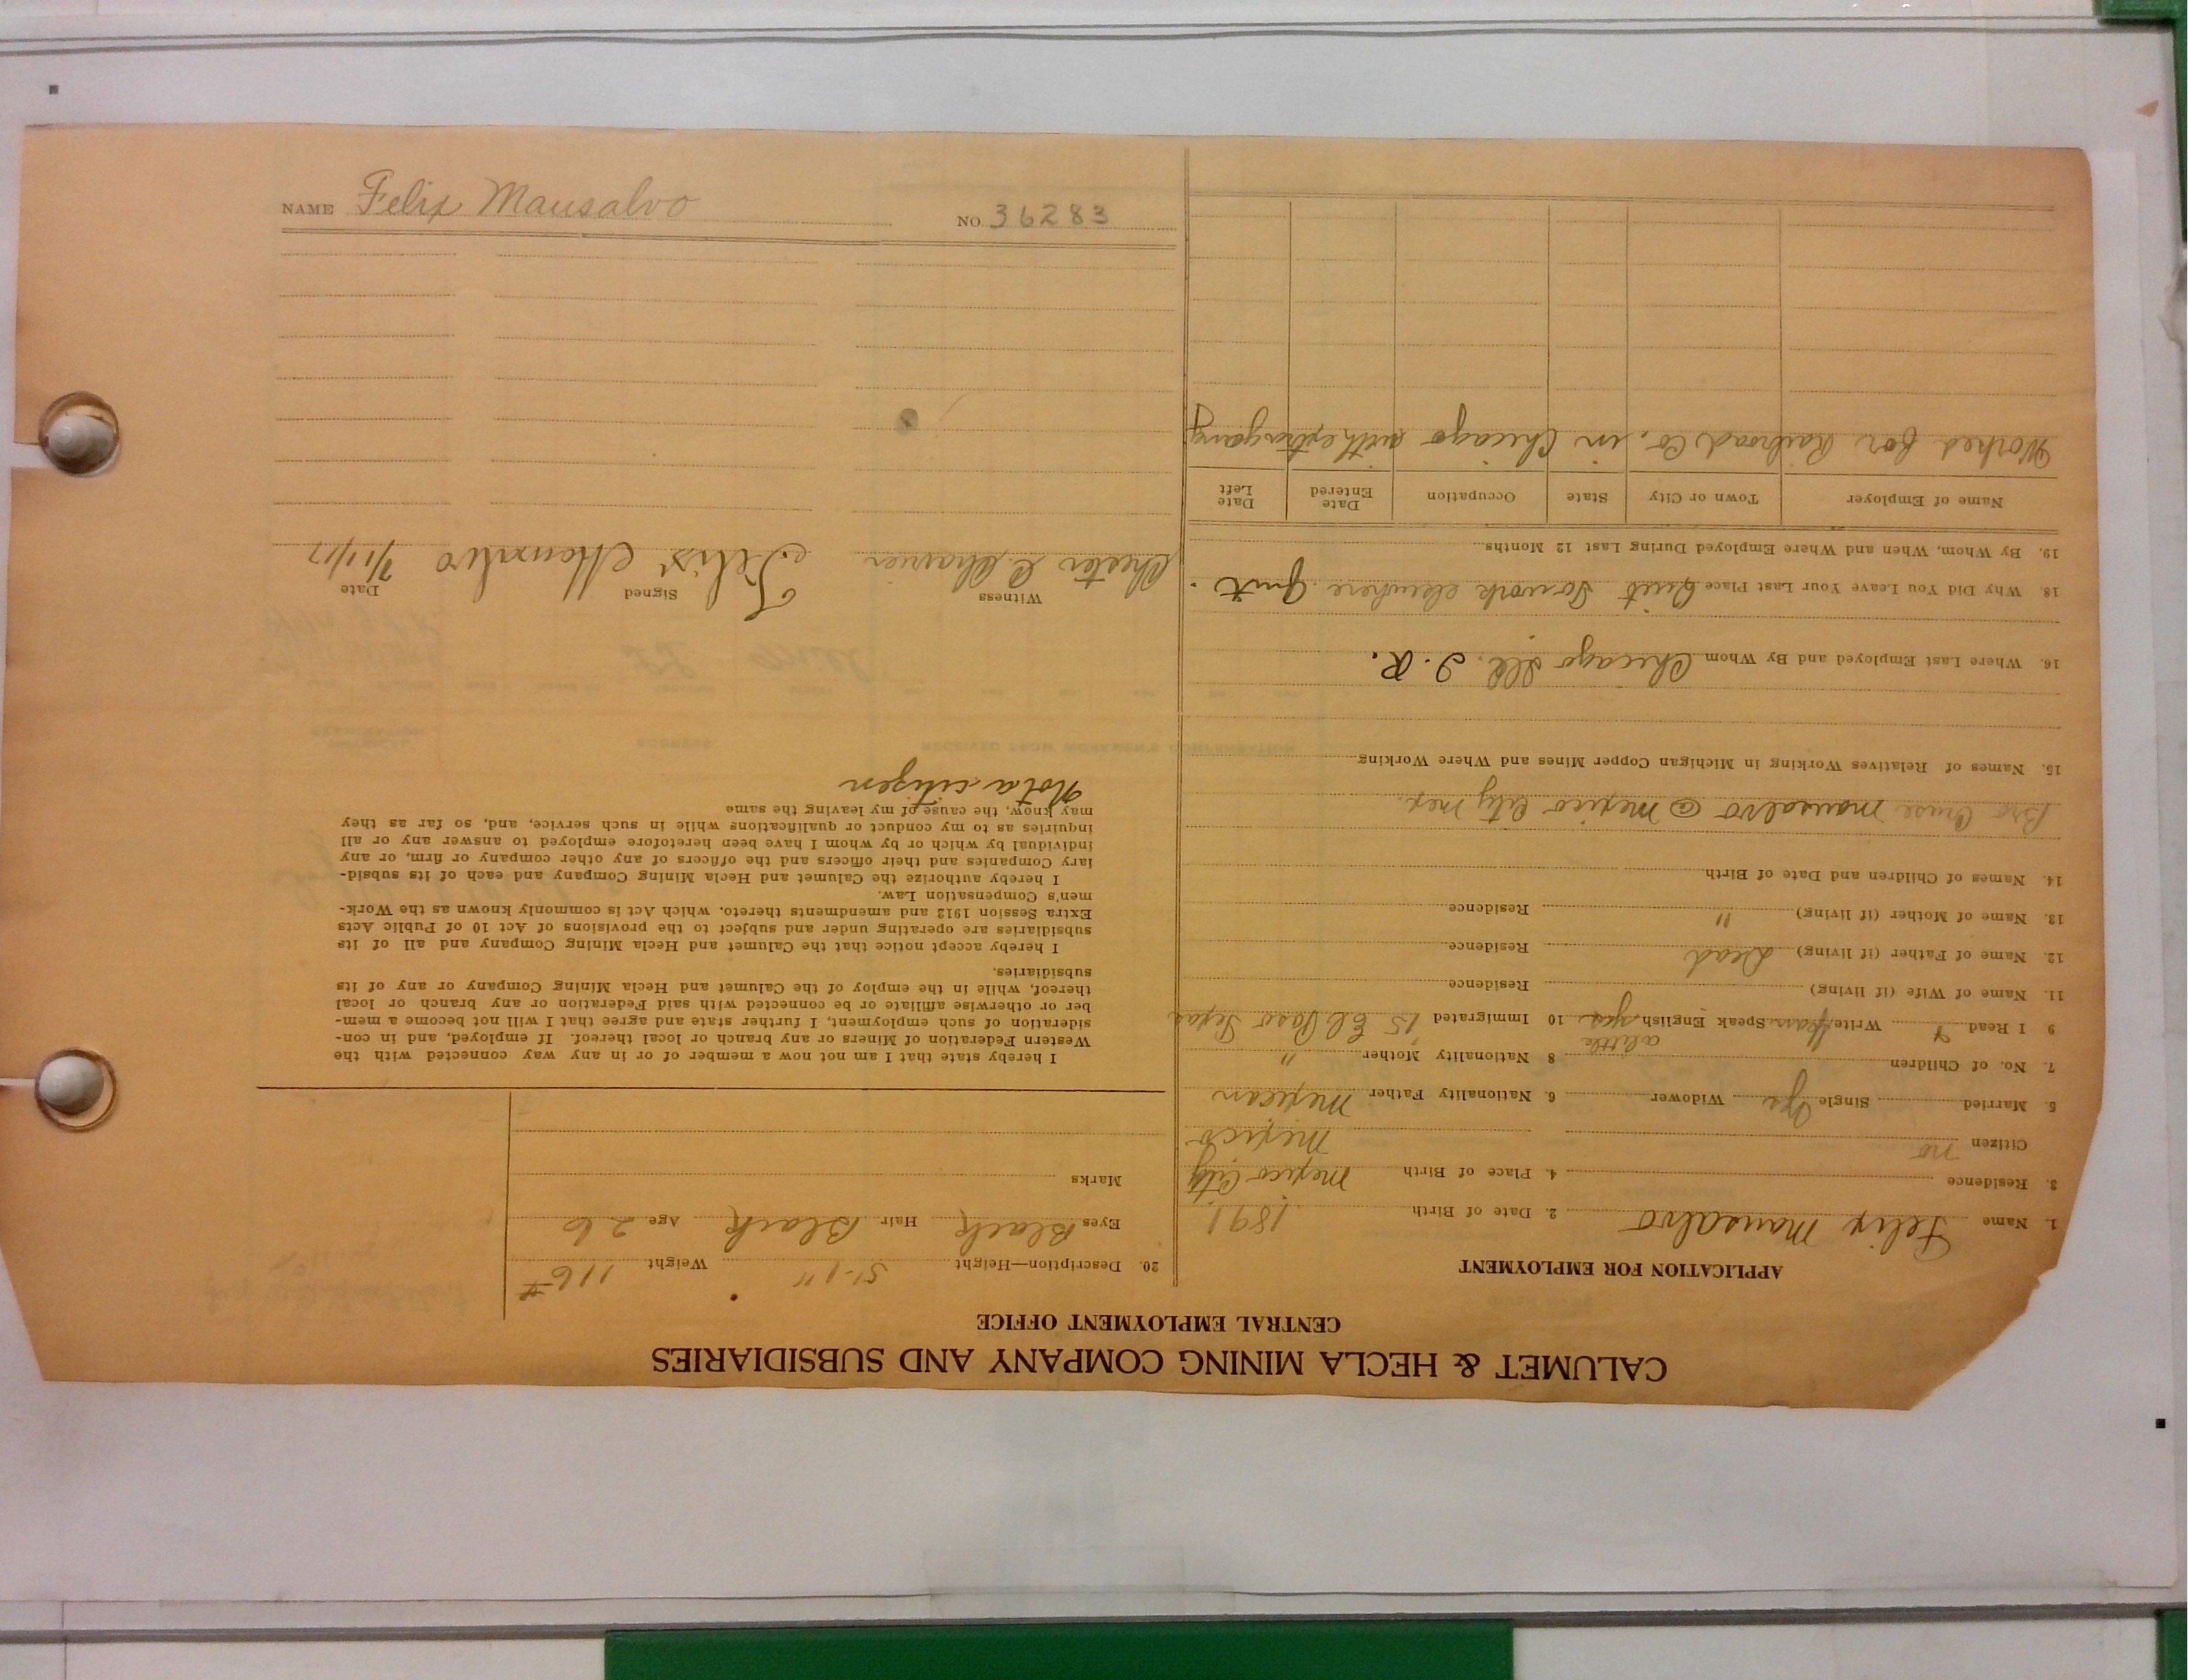 CALUMET & HECLA MINING COMPANY AND SUBSIDIARIES
CENTRAL EMPLOYMENT OFFICE
APPLICATION FOR EMPLOYMENT
1. Name Felix Mausalvo 2. Date of Birth 1891
3. Residence 4. Place of Birth Mexico City
Citizen no Mexico
5. Married Single Yes Widower 6. Nationality Father Mexican
7. No. of Children 8 Nationality Mother "
a little
9 I Read Y Write Span. Speak English yes 10 Immigrated '15 El Paso Texas
11. Name of Wife (if living) Residence
12. Name of Father (if living) Dead Residence
13. Name of Mother (if living) " Residence
14. Names of Children and Date of Birth
Bro Cruse Mausalvo @ Mexico City Mex.
15. Names of Relatives Working in Michigan Copper Mines and Where Working
16. Where Last Employed and By Whom Chicago Ill. I. R.
18. Why Did You Leave Your Last Place Quit To work elsewhere Quit.
19. By Whom, When and Where Employed During Last 12 Months
Name of Employer Town or City State Occupation Date Entered Date Left
Worked for Railroad Co. in Chicago with extra gang
20. Description—Height 5'-1" Weight 116 #
Eyes Black Hair Black Age 26
Marks
I hereby state that I am not now a member of or in any way connected with the
Western Federation of Miners or any branch or local thereof. If employed, and in con-
sideration of such employment, I further state and agree that I will not become a mem-
ber or otherwise affiliate or be connected with said Federation or any branch or local
thereof, while in the employ of the Calumet and Hecla Mining Company or any of its
subsidiaries.
I hereby accept notice that the Calumet and Hecla Mining Company and all of its
subsidiaries are operating under and subject to the provisions of Act 10 of Public Acts
Extra Session 1912 and amendments thereto. which Act is commonly known as the Work-
men's Compensation Law.
I hereby authorize the Calumet and Hecla Mining Company and each of its subsid-
iary Companies and their officers and the officers of any other company or firm, or any
individual by which or by whom I have been heretofore employed to answer any or all
inquiries as to my conduct or qualifications while in such service, and, so far as they
may know, the cause of my leaving the same
Not a citizen
Witness Signed Date
Chester C. Felix Mausalvo 7/11/17
NAME Felix Mausalvo NO. 36283